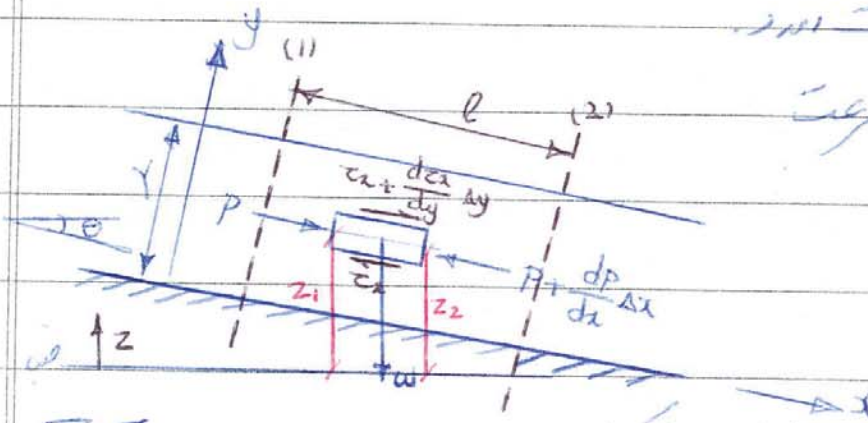 y
(1)
l
(2)
τx + dτx/dy Δy
Y
P
θ
τx
P + dP/dx Δx
z1
z2
z
w
x